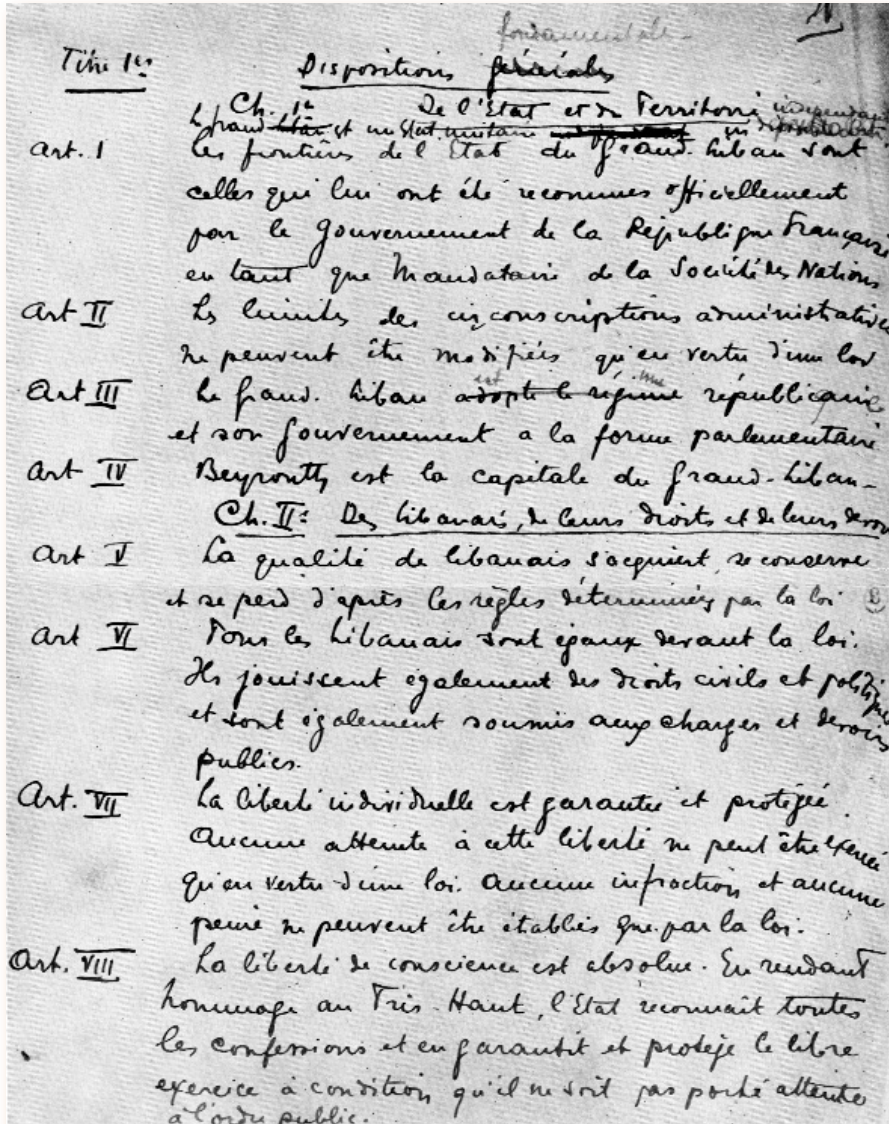 fondamentale -
Titre 1er Dispositions générales
Ch. 1er De l'Etat et du Territoire indépendant
Le Grand Liban est un Etat unitaire
Art. I Les frontières de l'Etat du Grand-Liban sont
celles qui lui ont été reconnues officiellement
par le Gouvernement de la République Française
en tant que Mandataire de la Société des Nations
Art II Les limites des circonscriptions administratives
ne peuvent être modifiées qu'en vertu d'une loi
est une
Art III Le Grand-Liban adopte le régime républicaine
et son Gouvernement a la forme parlementaire
Art IV Beyrouth est la capitale du Grand-Liban -
Ch. II: Des Libanais, de leurs droits et de leurs devoirs
Art V La qualité de libanais s'acquiert, se conserve
et se perd d'après les règles déterminées par la loi
Art VI Tous les Libanais sont égaux devant la loi.
Ils jouissent également des droits civils et politiques
et sont également soumis aux charges et devoirs
publics.
Art. VII La liberté individuelle est garantie et protégée
Aucune atteinte à cette liberté ne peut être exercée
qu'en vertu d'une loi. Aucune infraction et aucune
peine ne peuvent être établies que par la loi.
Art. VIII La liberté de conscience est absolue. En rendant
hommage au Très-Haut, l'Etat reconnait toutes
les confessions et en garantit et protège le libre
exercice à condition qu'il ne soit pas porté atteinte
à l'ordre public.